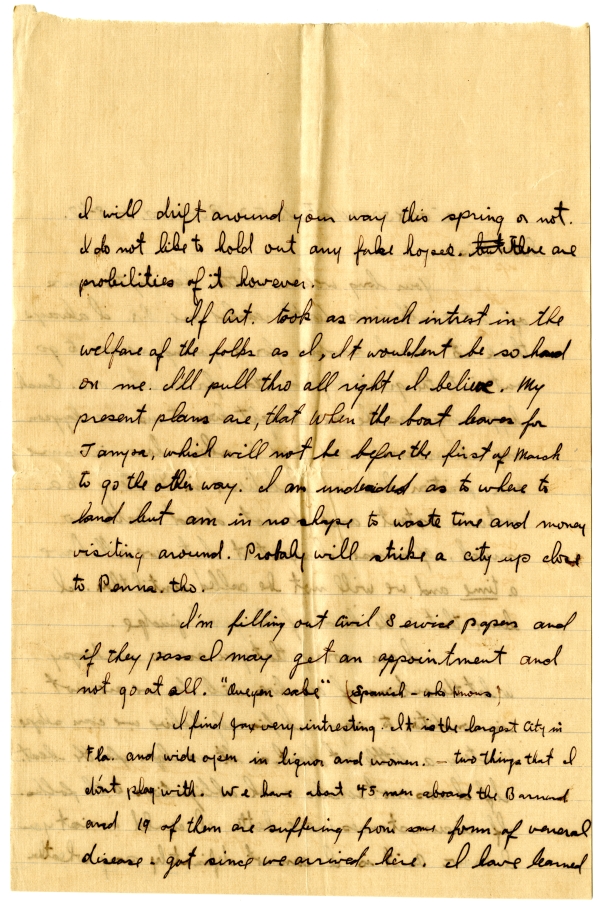 I will drift around your way this spring or not.
I do not like to hold out any false hopes. but There are
probilities of it however.
If Art. took as much intrest in the
welfare of the folks as I, It wouldent be so hard
on me. I'll pull thro all right I believe. My
present plans are, that when the boat leaves for
Tampa, which will not be before the first of March
to go the other way. I am undecided as to where to
land but am in no shape to waste time and money
visiting around. Probaly will strike a city up close
to Penna. tho.
I'm filling out Civil Service papers and
if they pass I may get an appointment and
not go at all. "Queyen sabe" (Spanish - who knows)
I find Jax very intresting. It is the largest City in
Fla. and wide open in liquor and women. - two things that I
don't play with. We have about 45 men aboard the Barnard
and 19 of them are suffering from some form of veneral
disease - got since we arrived here. I have learned